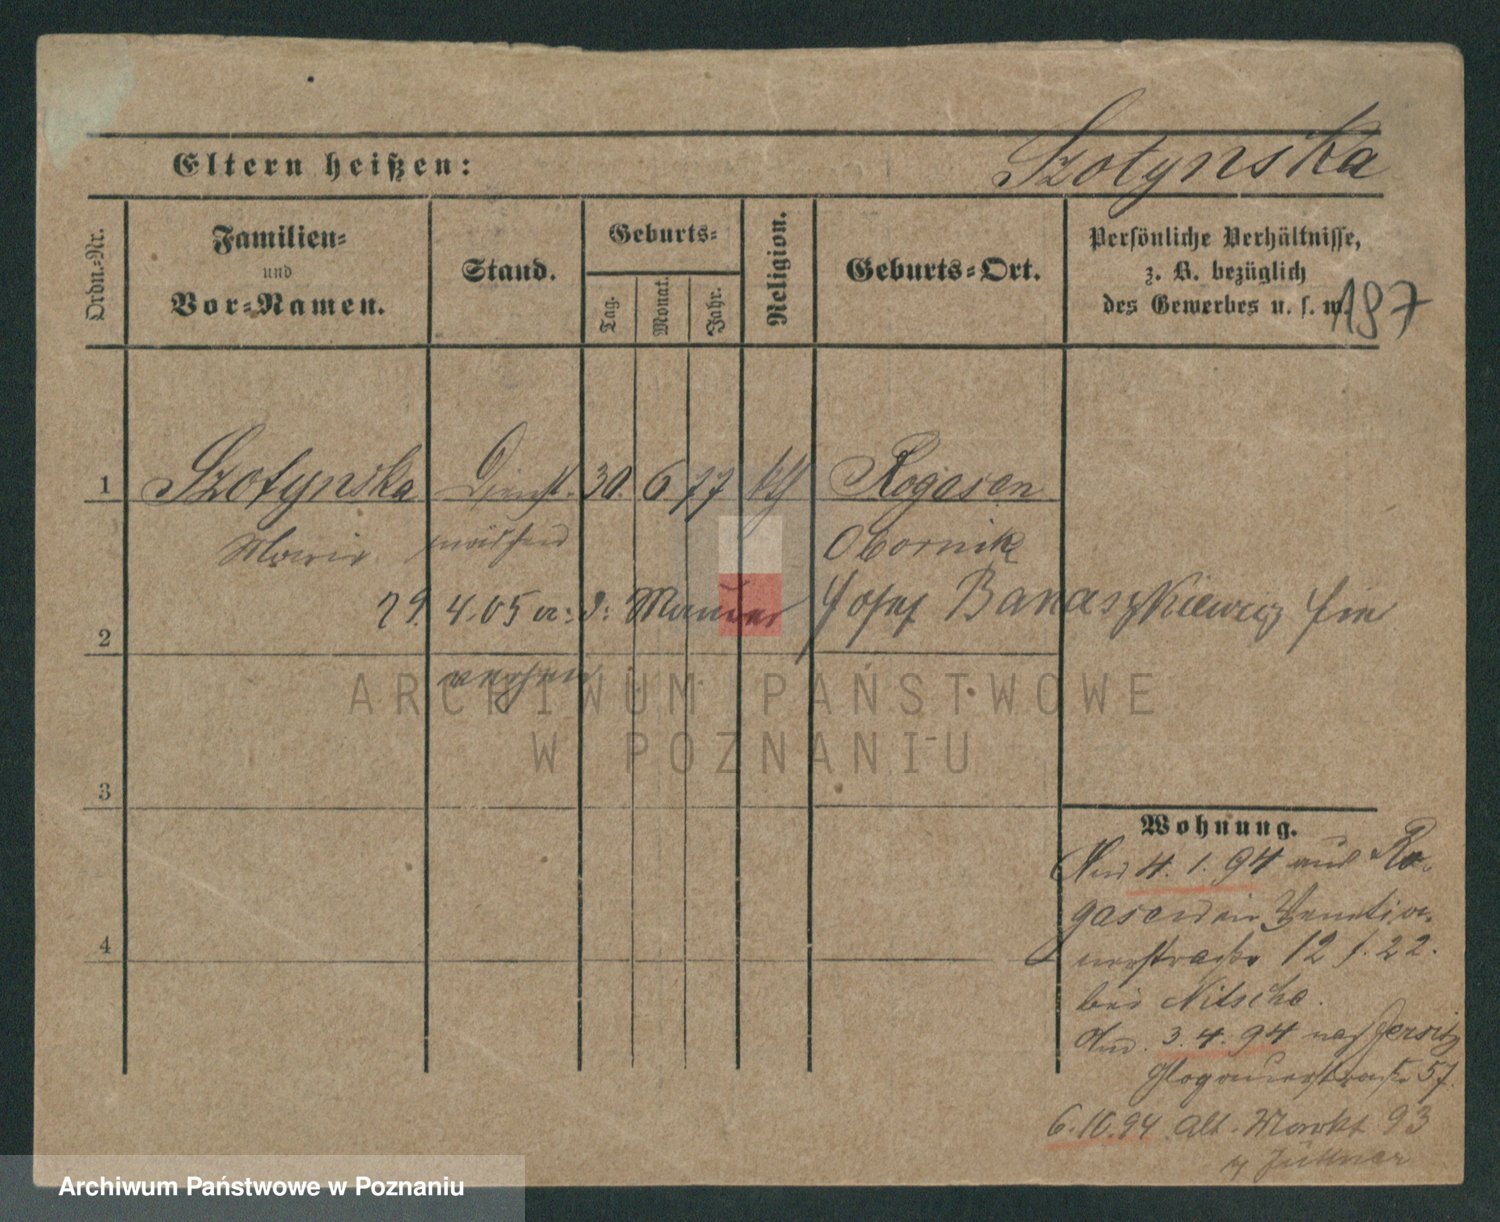 Szotynska
Eltern heißen:
Ordn.-Nr.
Familien-
und
Vor-Namen.
Stand.
Geburts-
Tag.
Monat.
Jahr.
Religion.
Geburts-Ort.
Persönliche Verhältnisse,
z. B. bezüglich
des Gewerbes u. s. w.
197
1 Szotynska Dienst. 30. 6 77 kth Rogasen
Marie mädchen Obornik
29. 4. 05 a: d: Maurer Josef Banaszkiewicz hier
2
verehel.
ARCHIWUM PAŃSTWOWE
W POZNANIU
3
4
Wohnung.
4. 1. 94 aus Ro-
gasen
straße 12 b. 22.
bei Nitsche.
3. 4. 94 nach Jersitz
Glogauerstraße 57.
6. 10. 94 Alt. Markt 93
Archiwum Państwowe w Poznaniu